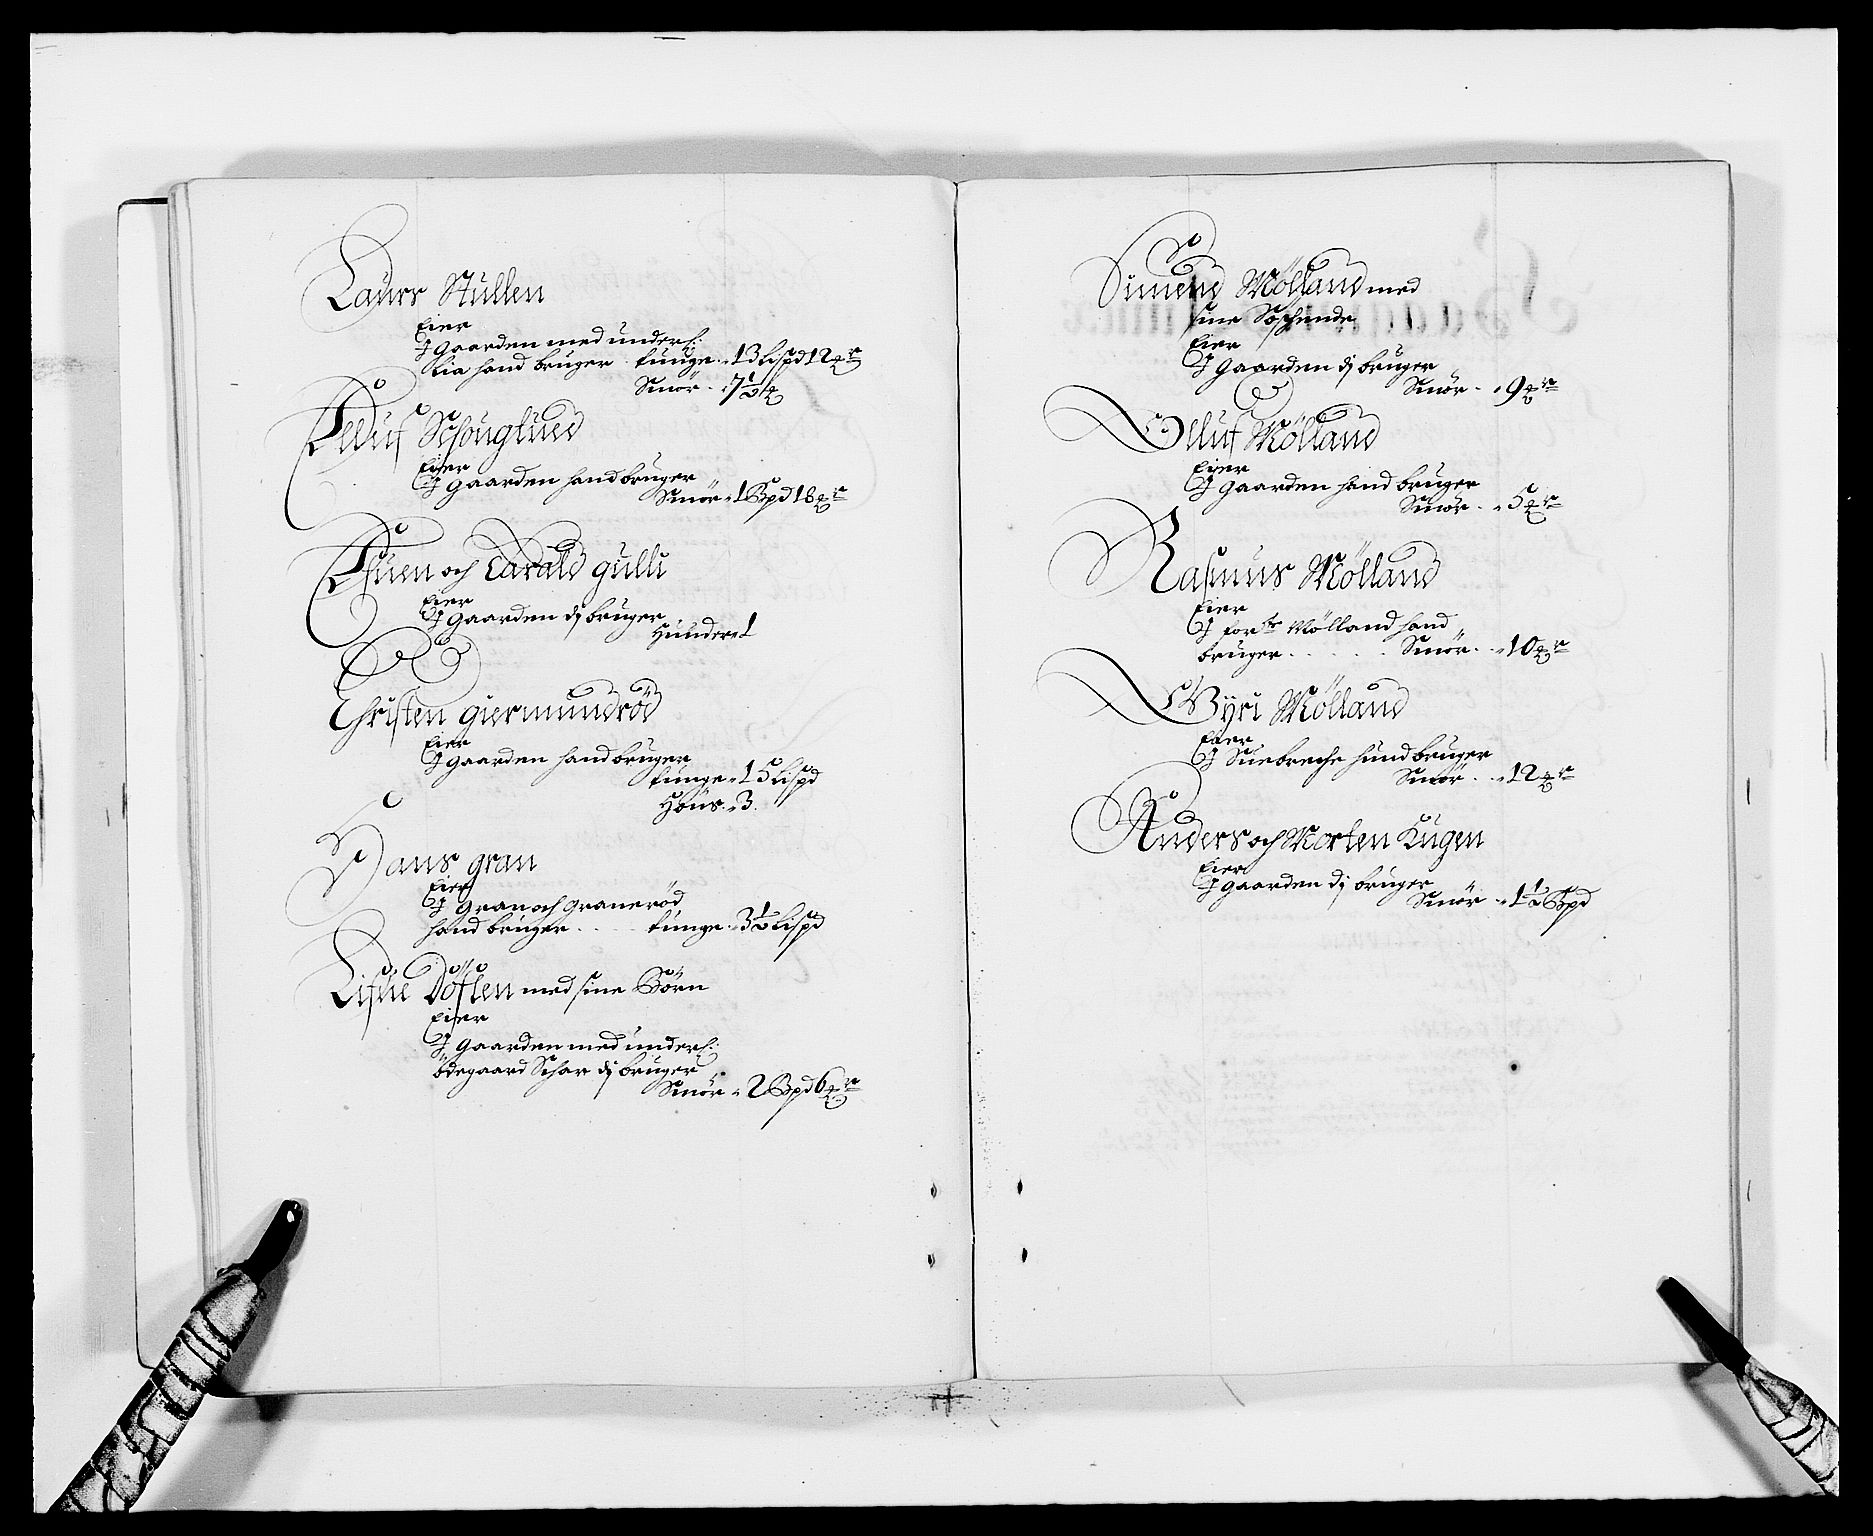 Laurs Stullen
Eier
J gaarden med underl:
Lia hand bruger tunge. 13 Lispd 12 ℔r
Smör. 7½ ℔
Olluf Schouglund
Eier
J gaarden hand bruger
Smör. 1 Bpd 18 ℔r
Asuen och Tarald gulli
Eier
J gaarden dj bruger
Hunderet
Christen giermundröd
Eier
J gaarden hand bruger
tunge. 15 Lispd
Höns. 3.
Hans gran
Eier
J gran och granerød
hand bruger . . . tunge. 3½ Lispd
Lisue Döflen med sine Börn
Eier
J gaarden med underl:
ödegaard Schar dj bruger
Smör. 2 Bpd 6 ℔r
Simend Mölland med
sine Söschende
Eier
J gaarden dj bruger
Smör. 9 ℔r
Olluf Mölland
Eier
J gaarden hand bruger
Smör. 5 ℔r
Rasmus Mölland
Eier
J forne Mölland hand
bruger . . . . . Smör. 10 ℔r
Gyri Mölland
Eier
J Suebreche hund bruger
Smör. 12 ℔r
Anders och Morten Kugen
Eier
J gaarden dj bruger
Smör. 1½ Bpd